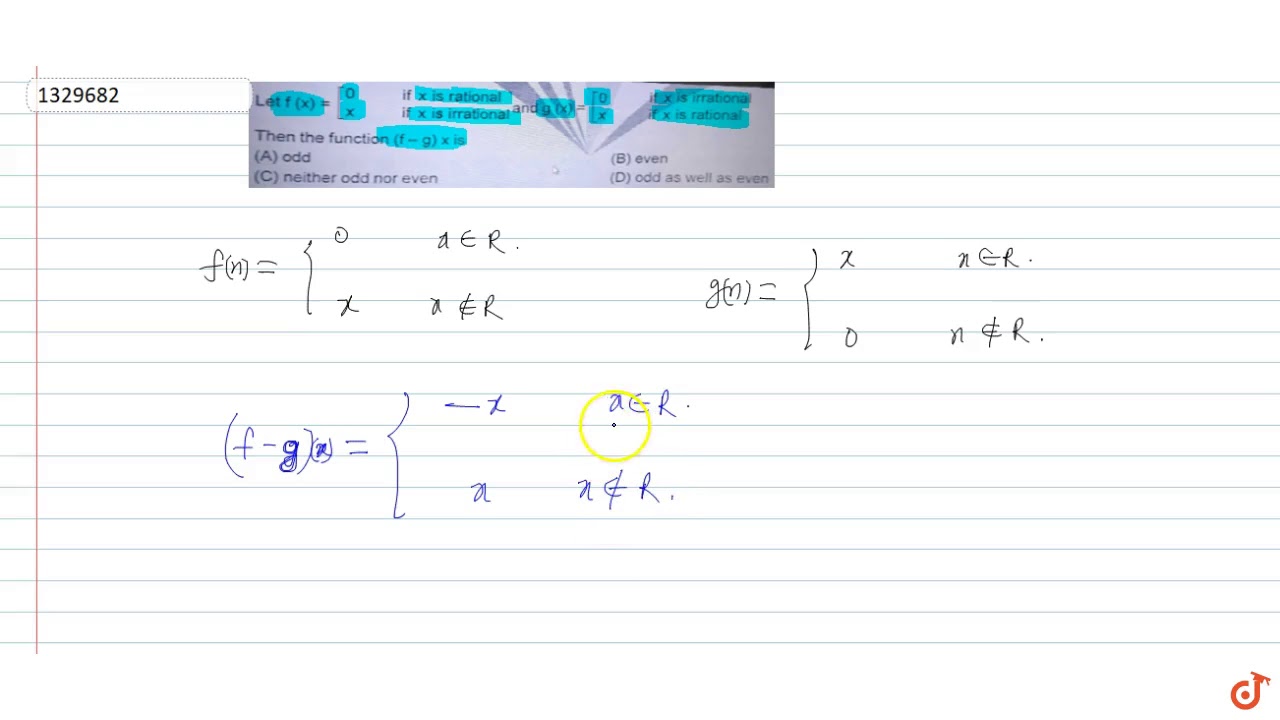 1329682
Let f (x) = [0 if x is rational
x if x is irrational and g (x) = [0 if x is irrational
x if x is rational
Then the function (f – g) x is
(A) odd (B) even
(C) neither odd nor even (D) odd as well as even
f(x) = { 0 x ∈ R.
x x ∉ R
g(x) = { x x ∈ R.
0 x ∉ R.
(f - g)(x) = { - x x ∈ R.
x x ∉ R.